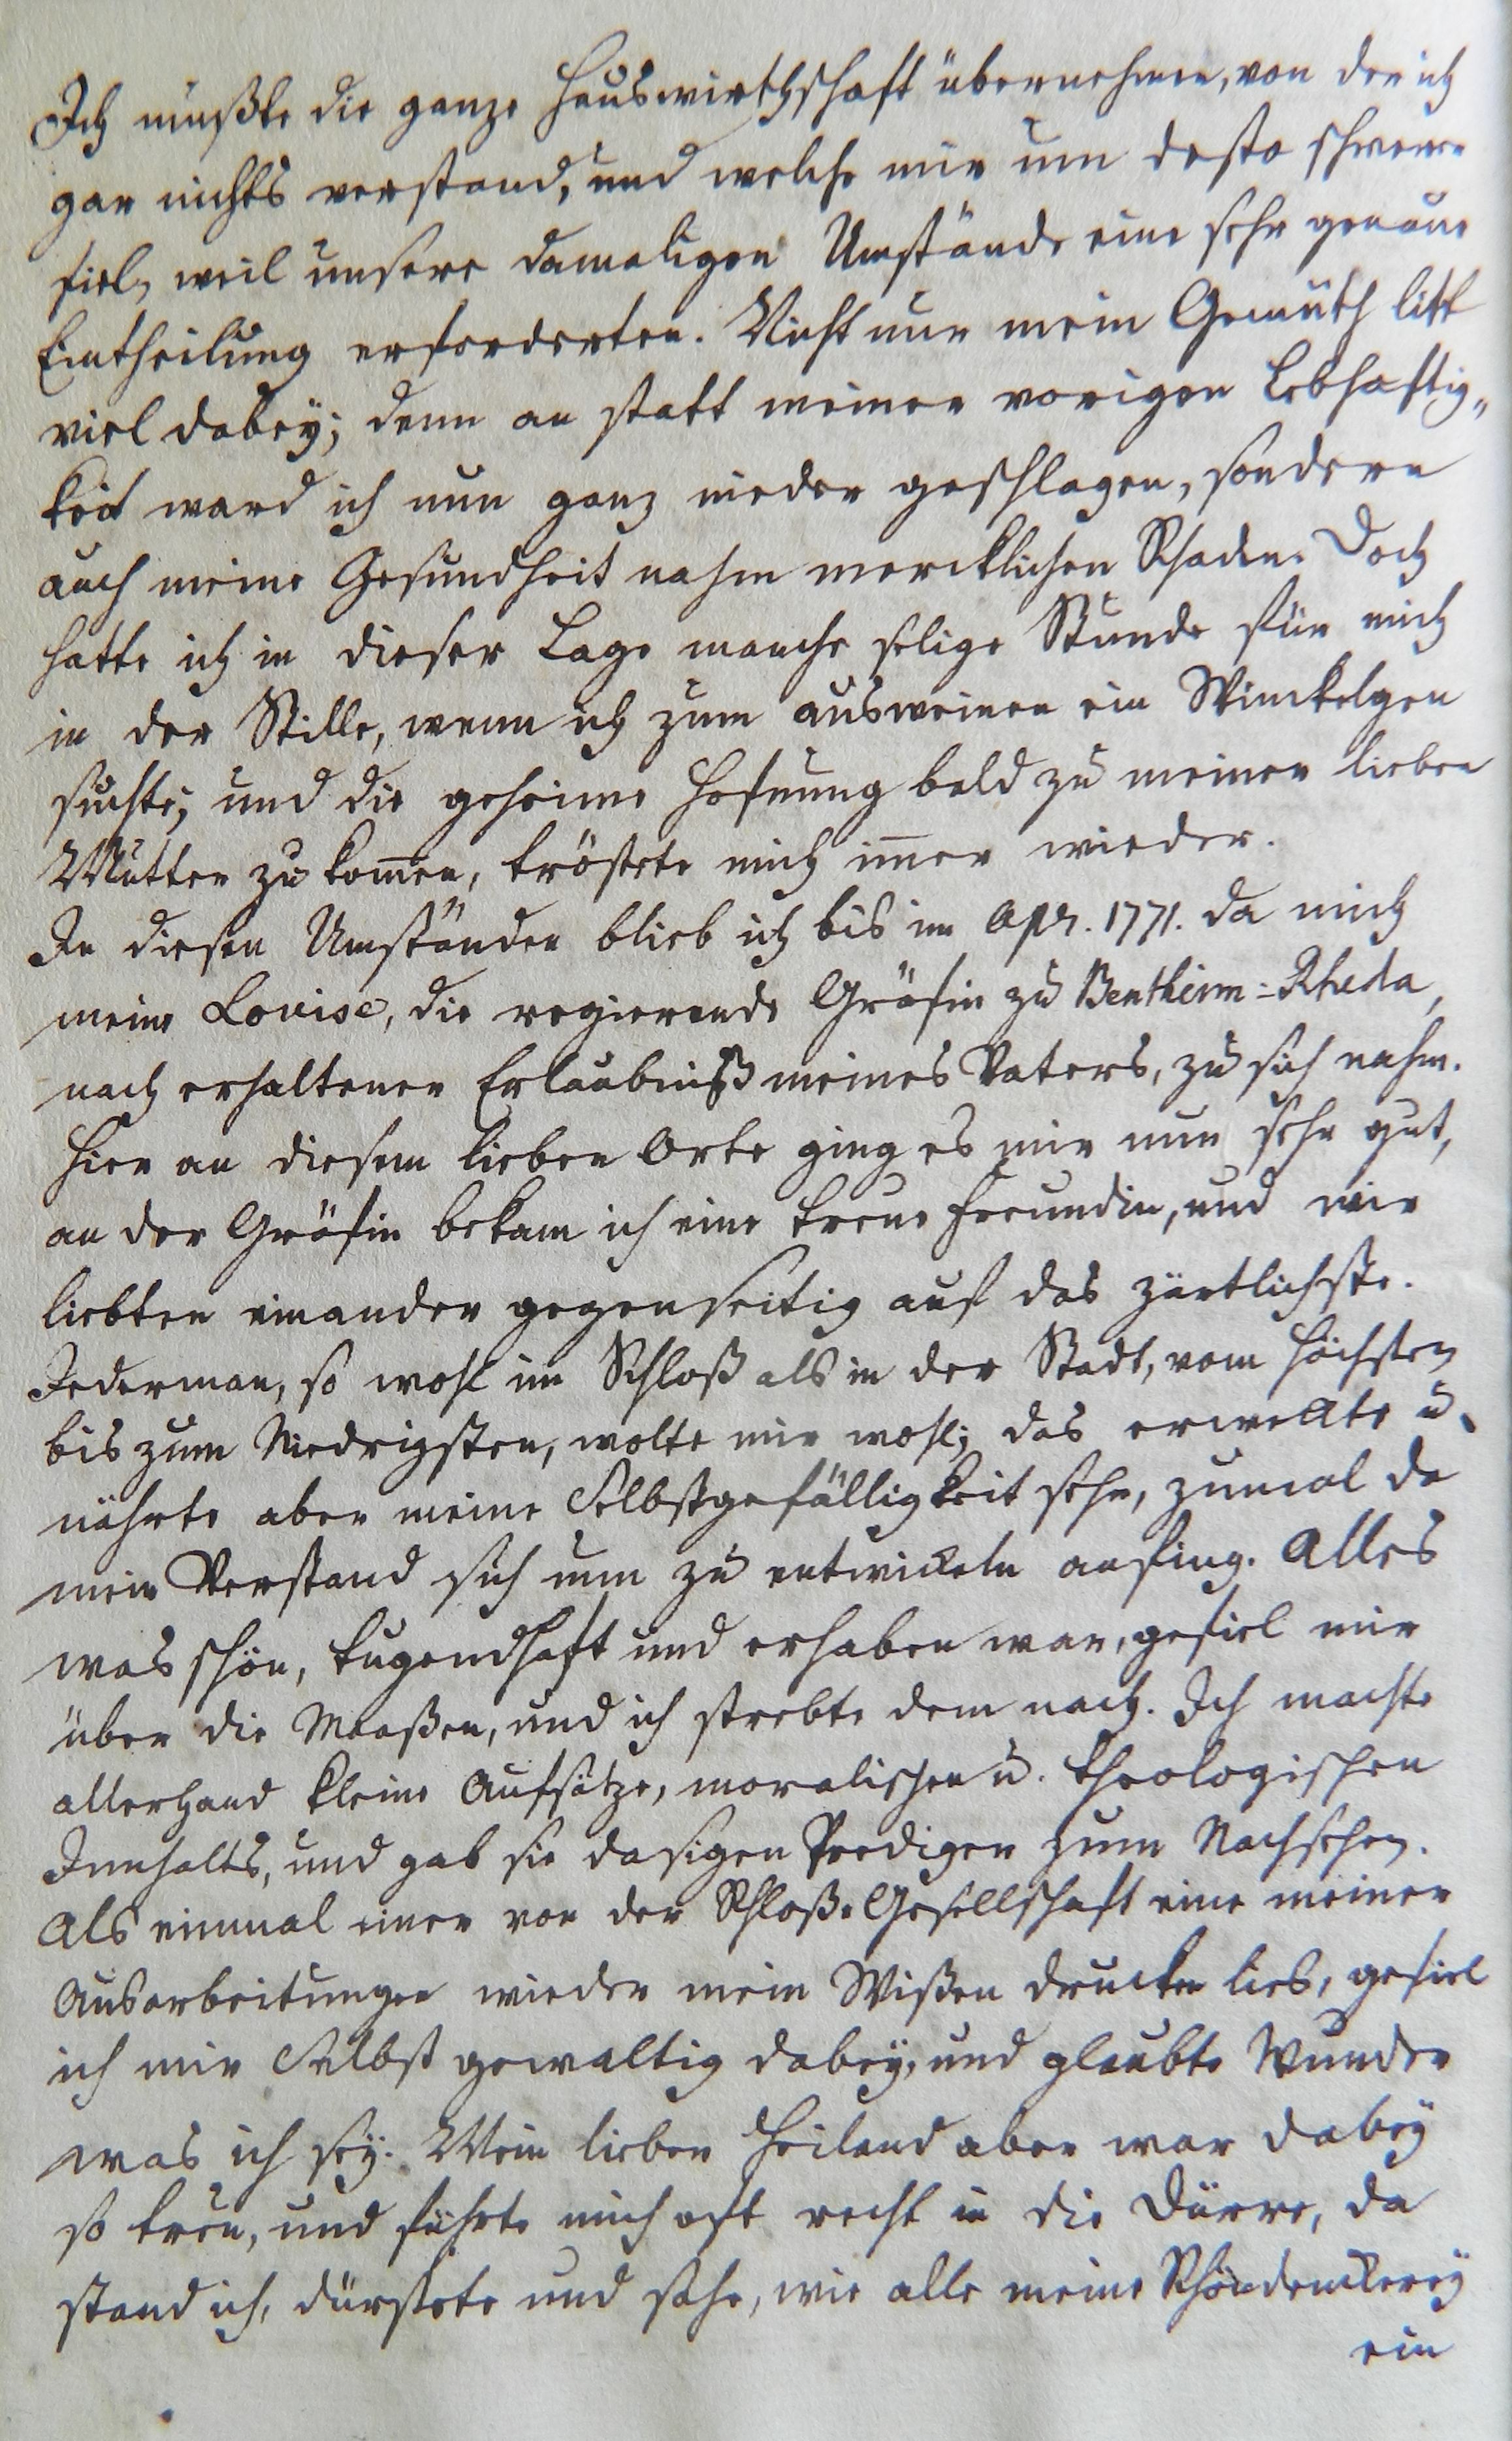 Ich mußte die ganze Hauswirthschaft übernehmen, von der ich
gar nichts verstand, und welche mir um desto schwerer
fiel, weil unsere damaligen Umstände eine sehr genaue
Eintheilung erforderten. Nicht nur mein Gemüth litt
viel dabey; denn an statt meiner vorigen Lebhaftig„
keit ward ich nun ganz nieder geschlagen, sondern
auch meine Gesundheit nahm mercklichen Schaden. Doch
hatte ich in dieser Lage manche selige Stunde für mich
in der Stille, wenn ich zum ausweinen ein Winckelgen
suchte; und die geheime Hofnung bald zu meiner lieben
Mutter zu kom̅en, tröstete mich im̅er wieder.
In diesen Umständen blieb ich bis im Apr. 1771. da mich
meine Lovise, die regierende Gräfin zu Bentheim=Rheda,
nach erhaltener Erlaubniß meines Vaters, zu sich nahm.
Hier an diesem lieben Orte ging es mir nun sehr gut,
an der Gräfin bekam ich eine treue Freundin, und wir
liebten einander gegenseitig auf das zärtlichste.
Jederman, so wohl im Schloß als in der Stadt, vom höchsten
bis zum Niedrigsten, wolte mir wohl; das erweckte u.
nährte aber meine Selbstgefälligkeit sehr, zumal da
mein Verstand sich nun zu entwickeln anfing. Alles
was schön, tugendhaft und erhaben war, gefiel mir
über die Maaßen, und ich strebte dem nach. Ich machte
allerhand kleine Aufsätze, moralischen u. theologischen
Innhalts, und gab sie dasigen Prediger zum Nachsehen.
Als einmal einer von der Schloß-Gesellschaft eine meiner
Ausarbeitungen wieder mein Wißen drucken lies, gefiel
ich mir Selbst gewaltig dabey, und glaubte Wunder
was ich sey. Mein lieber Heiland aber war dabey
so treu, und führte mich oft recht in die Dürre, da
stand ich, dürstete und sahe, wie alle meine Schöndenckerey
ein